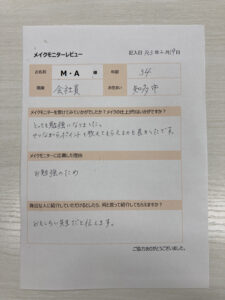 メイクモニターレビュー
記入日 R3年2月19日
お名前 M・A 様 年齢 34
職業 会社員 お住まい 知多市
メイクモニターを受けてみていかがでしたか?メイクの仕上がりはいかがですか?
とっても勉強になりました。
やりながらポイントも教えてもらえるのも良かったです。
メイクモニターに応募した理由
お勉強のため
身近な人に紹介していただけるとしたら、何と言って紹介してもらえますか?
おもしろい先生だと伝えます。
ご協力ありがとうございました。